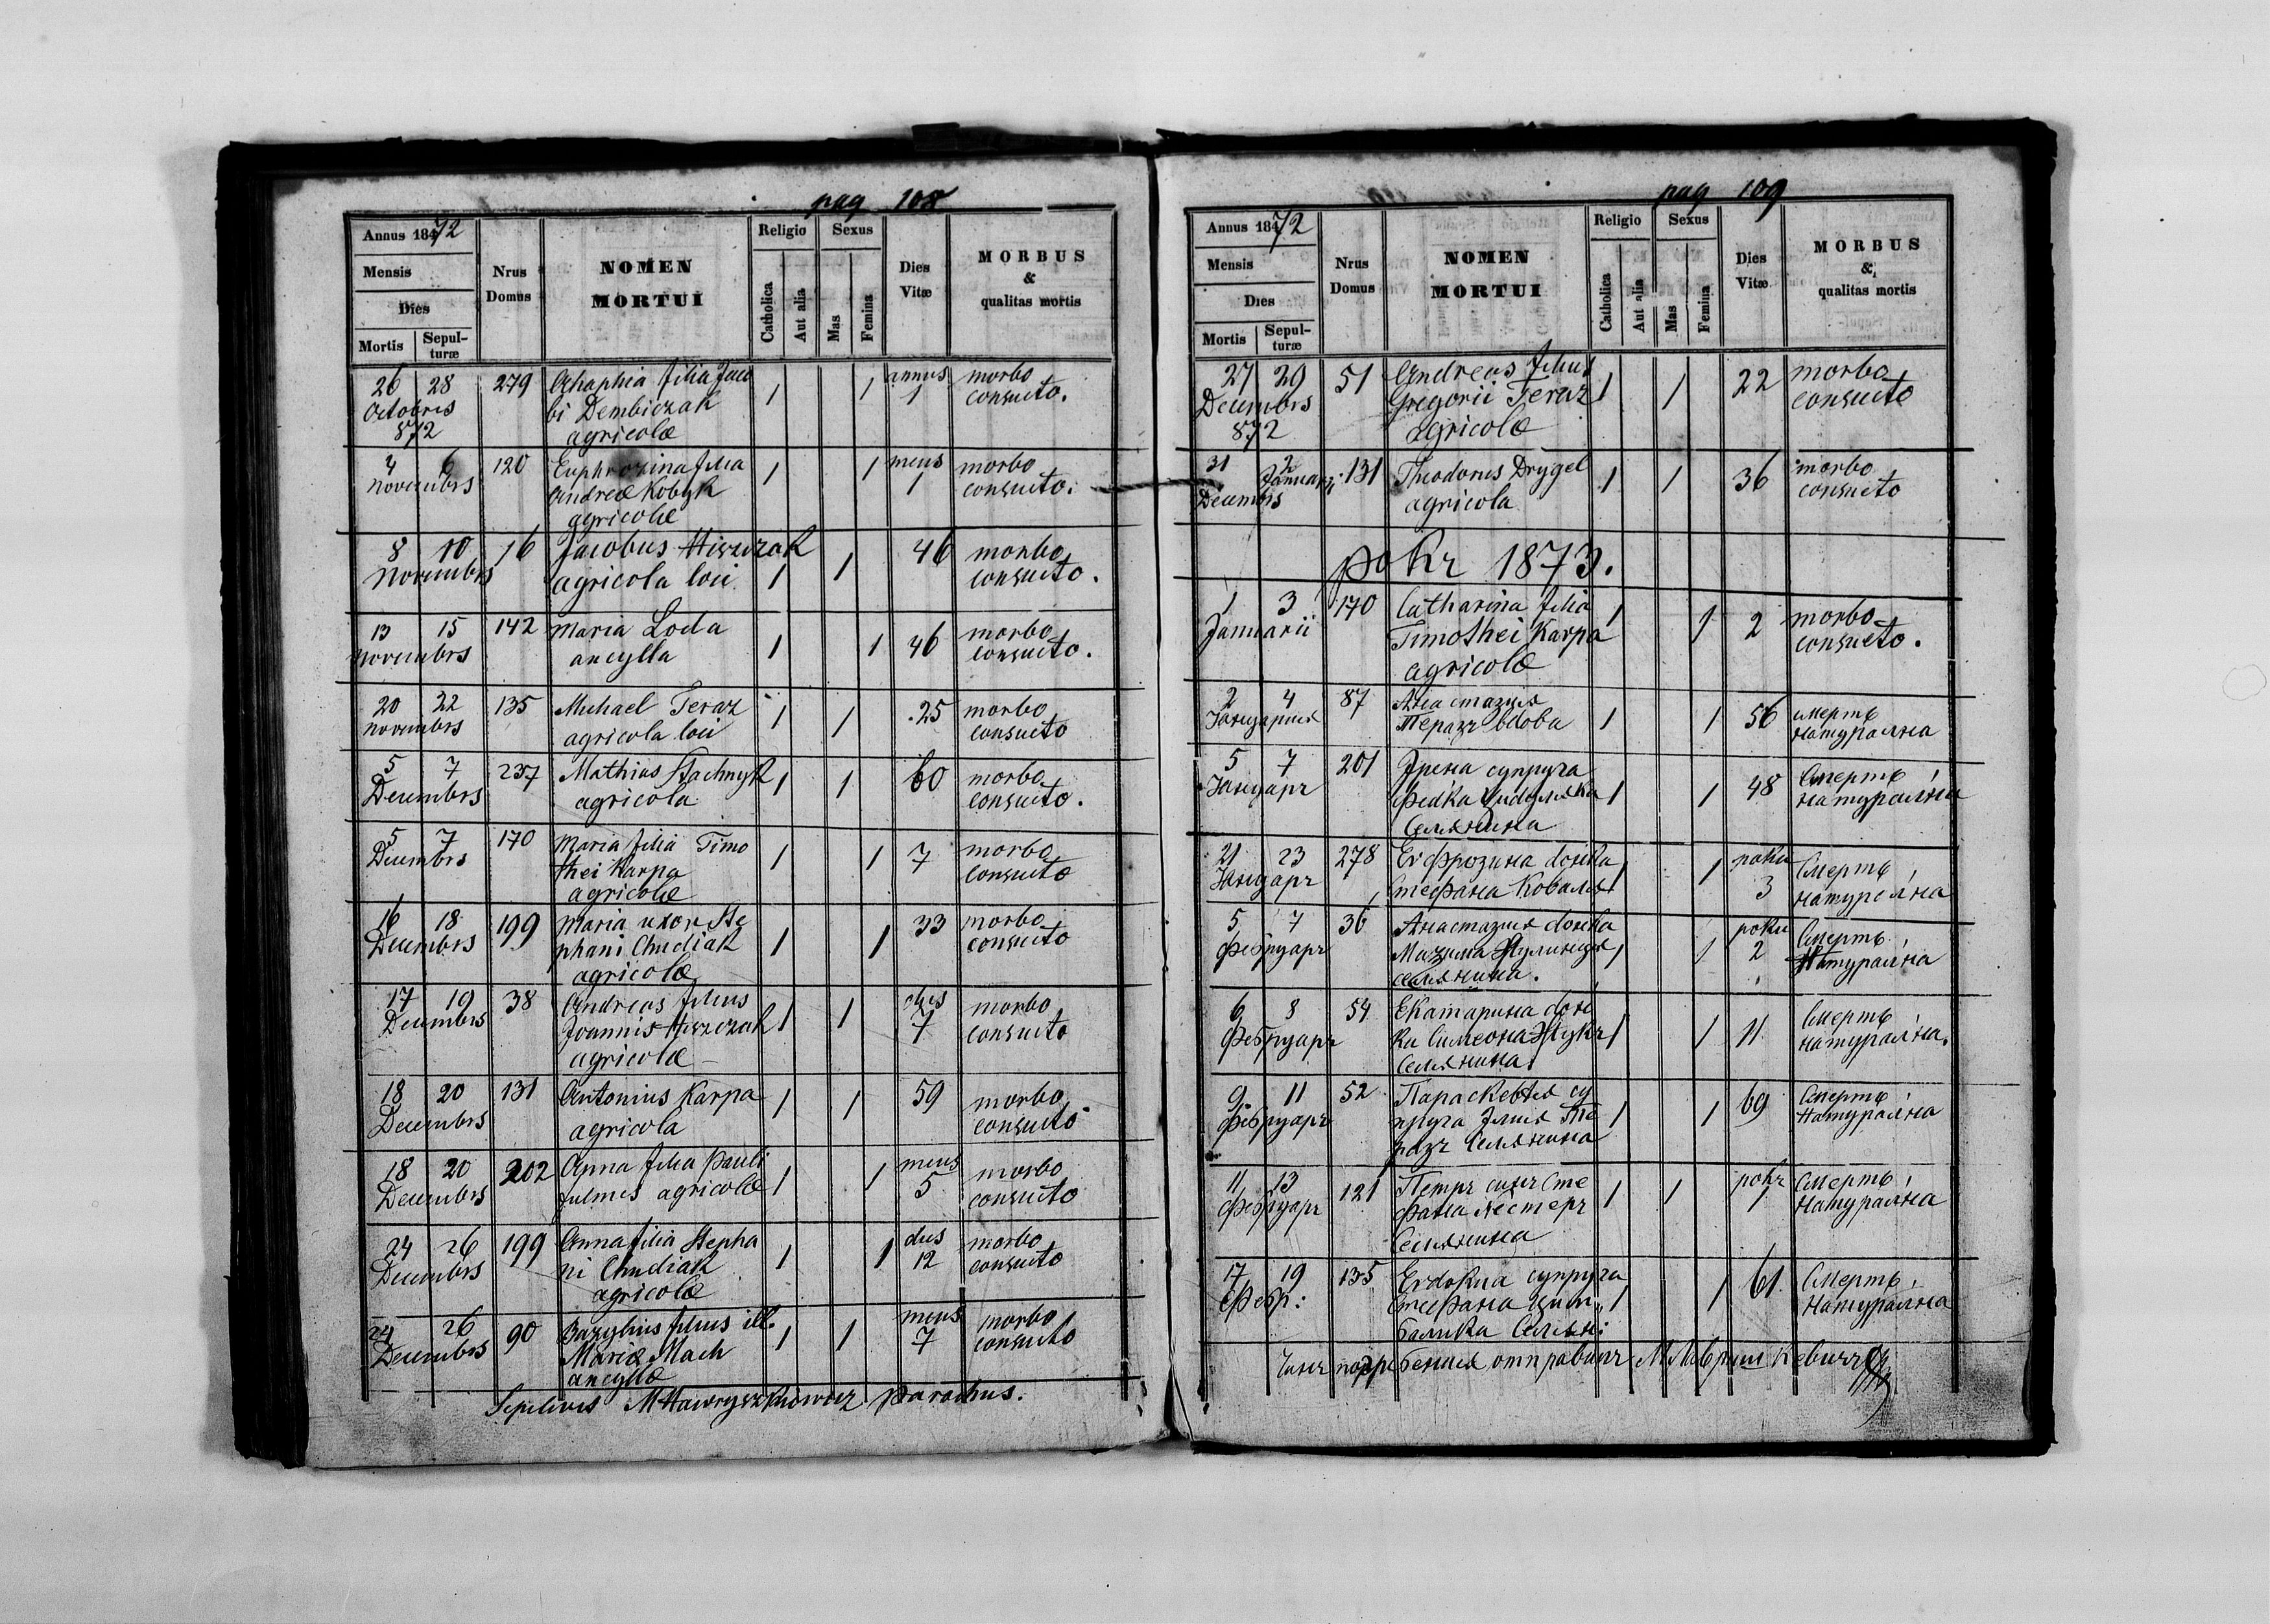 pag 108
Annus 18472
Mensis
Dies
Mortis Sepulturæ
Nrus Domus
NOMEN MORTUI
Religio
Catholica Aut alia
Sexus
Mas Femina
Dies Vitæ
MORBUS & qualitas mortis
26 28 279 Ahaphia filia Jaco 1 1 annus morbo
Octobris bi Dembiczak 1 consueto.
872 agricolæ
4 6 120 Euphrozina filia 1 1 mens morbo
Novembrs Andreæ Kobyk 1 consueto.
agricolæ
8 10 16 Jacobus Hiszczak 1 1 46 morbo
Novembrs agricola loci consueto.
13 15 142 Maria Loda 1 1 46 morbo
Novembrs ancylla consueto.
20 22 135 Michael Teraz 1 1 25 morbo
Novembrs agricola loci consueto
5 7 237 Mathias Stachnyk 1 1 60 morbo
Decembrs agricola consueto.
5 7 170 Maria filia Timo 1 1 7 morbo
Decembrs thei Karpa consueto
agricolæ
16 18 199 Maria uxor Ste 1 1 33 morbo
Decembrs phani Chudiak consueto
agricolæ
17 19 38 Andreas filius 1 1 dies morbo
Decembrs Joannis Hiszczak 7 consueto
agricolæ
18 20 131 Antonius Karpa 1 1 59 morbo
Decembrs agricola consueto
18 20 202 Anna filia Pauli 1 1 mens morbo
Decembrs Julmis agricolæ 5 consueto
24 26 199 Anna filia Stepha 1 1 dies morbo
Decembrs ni Chudiak 12 consueto
agricolæ
24 26 90 Bazylius filius ill. 1 1 mens morbo
Decembrs Mariæ Mach 7 consueto
ancyllæ
Sepelivit MHawryszkiewicz parochus.
pag 109
Annus 18472
Mensis
Dies
Mortis Sepulturæ
Nrus Domus
NOMEN MORTUI
Religio
Catholica Aut alia
Sexus
Mas Femina
Dies Vitæ
MORBUS & qualitas mortis
27 29 51 Andreas filius 1 1 22 morbo
Decembrs Gregorii Teraz consueto
872 agricolæ
31 2 131 Theodorus Drygel 1 1 36 morbo
Decembrs Januar agricola consueto
рокъ 1873.
1 3 170 Catharina filia 1 1 2 morbo
Januarii Timothei Karpa consueto.
agricolæ
2 4 87 Анастазия 1 1 56 смерть
Януария Теразъ вдова натурална
5 7 201 Ірена супруга 1 1 48 Смерть
Януаръ Федка
Селянина натурална
21 23 278 Евфрозина донька 1 1 роки Смерть
Януаръ Стефана Коваля 3 натурална
5 7 36 Анастазия донька 1 1 роки Смерть
Фебруаръ Максима 2 Натурална
селянина.
6 8 54 Екатарина донь 1 1 11 Смерть
Фебруаръ ки Симеона Жукъ натурална.
Селянина
9 11 52 Параскевия су 1 1 69 Смерть
Фебруаръ пруга Илия Те Натурална
разъ Селянина
11 13 121 Петръ синъ Сте 1 1 рокъ Смерть
Фебруаръ фана Нестеръ 1 Натурална
Селянина
17 19 135 Евдокиа супруга 1 1 61 Смерть
Фебр: Стефана Цим„ Натурална
балика Селян:
Чинъ погребения отправилъ М Гавришкевичъ